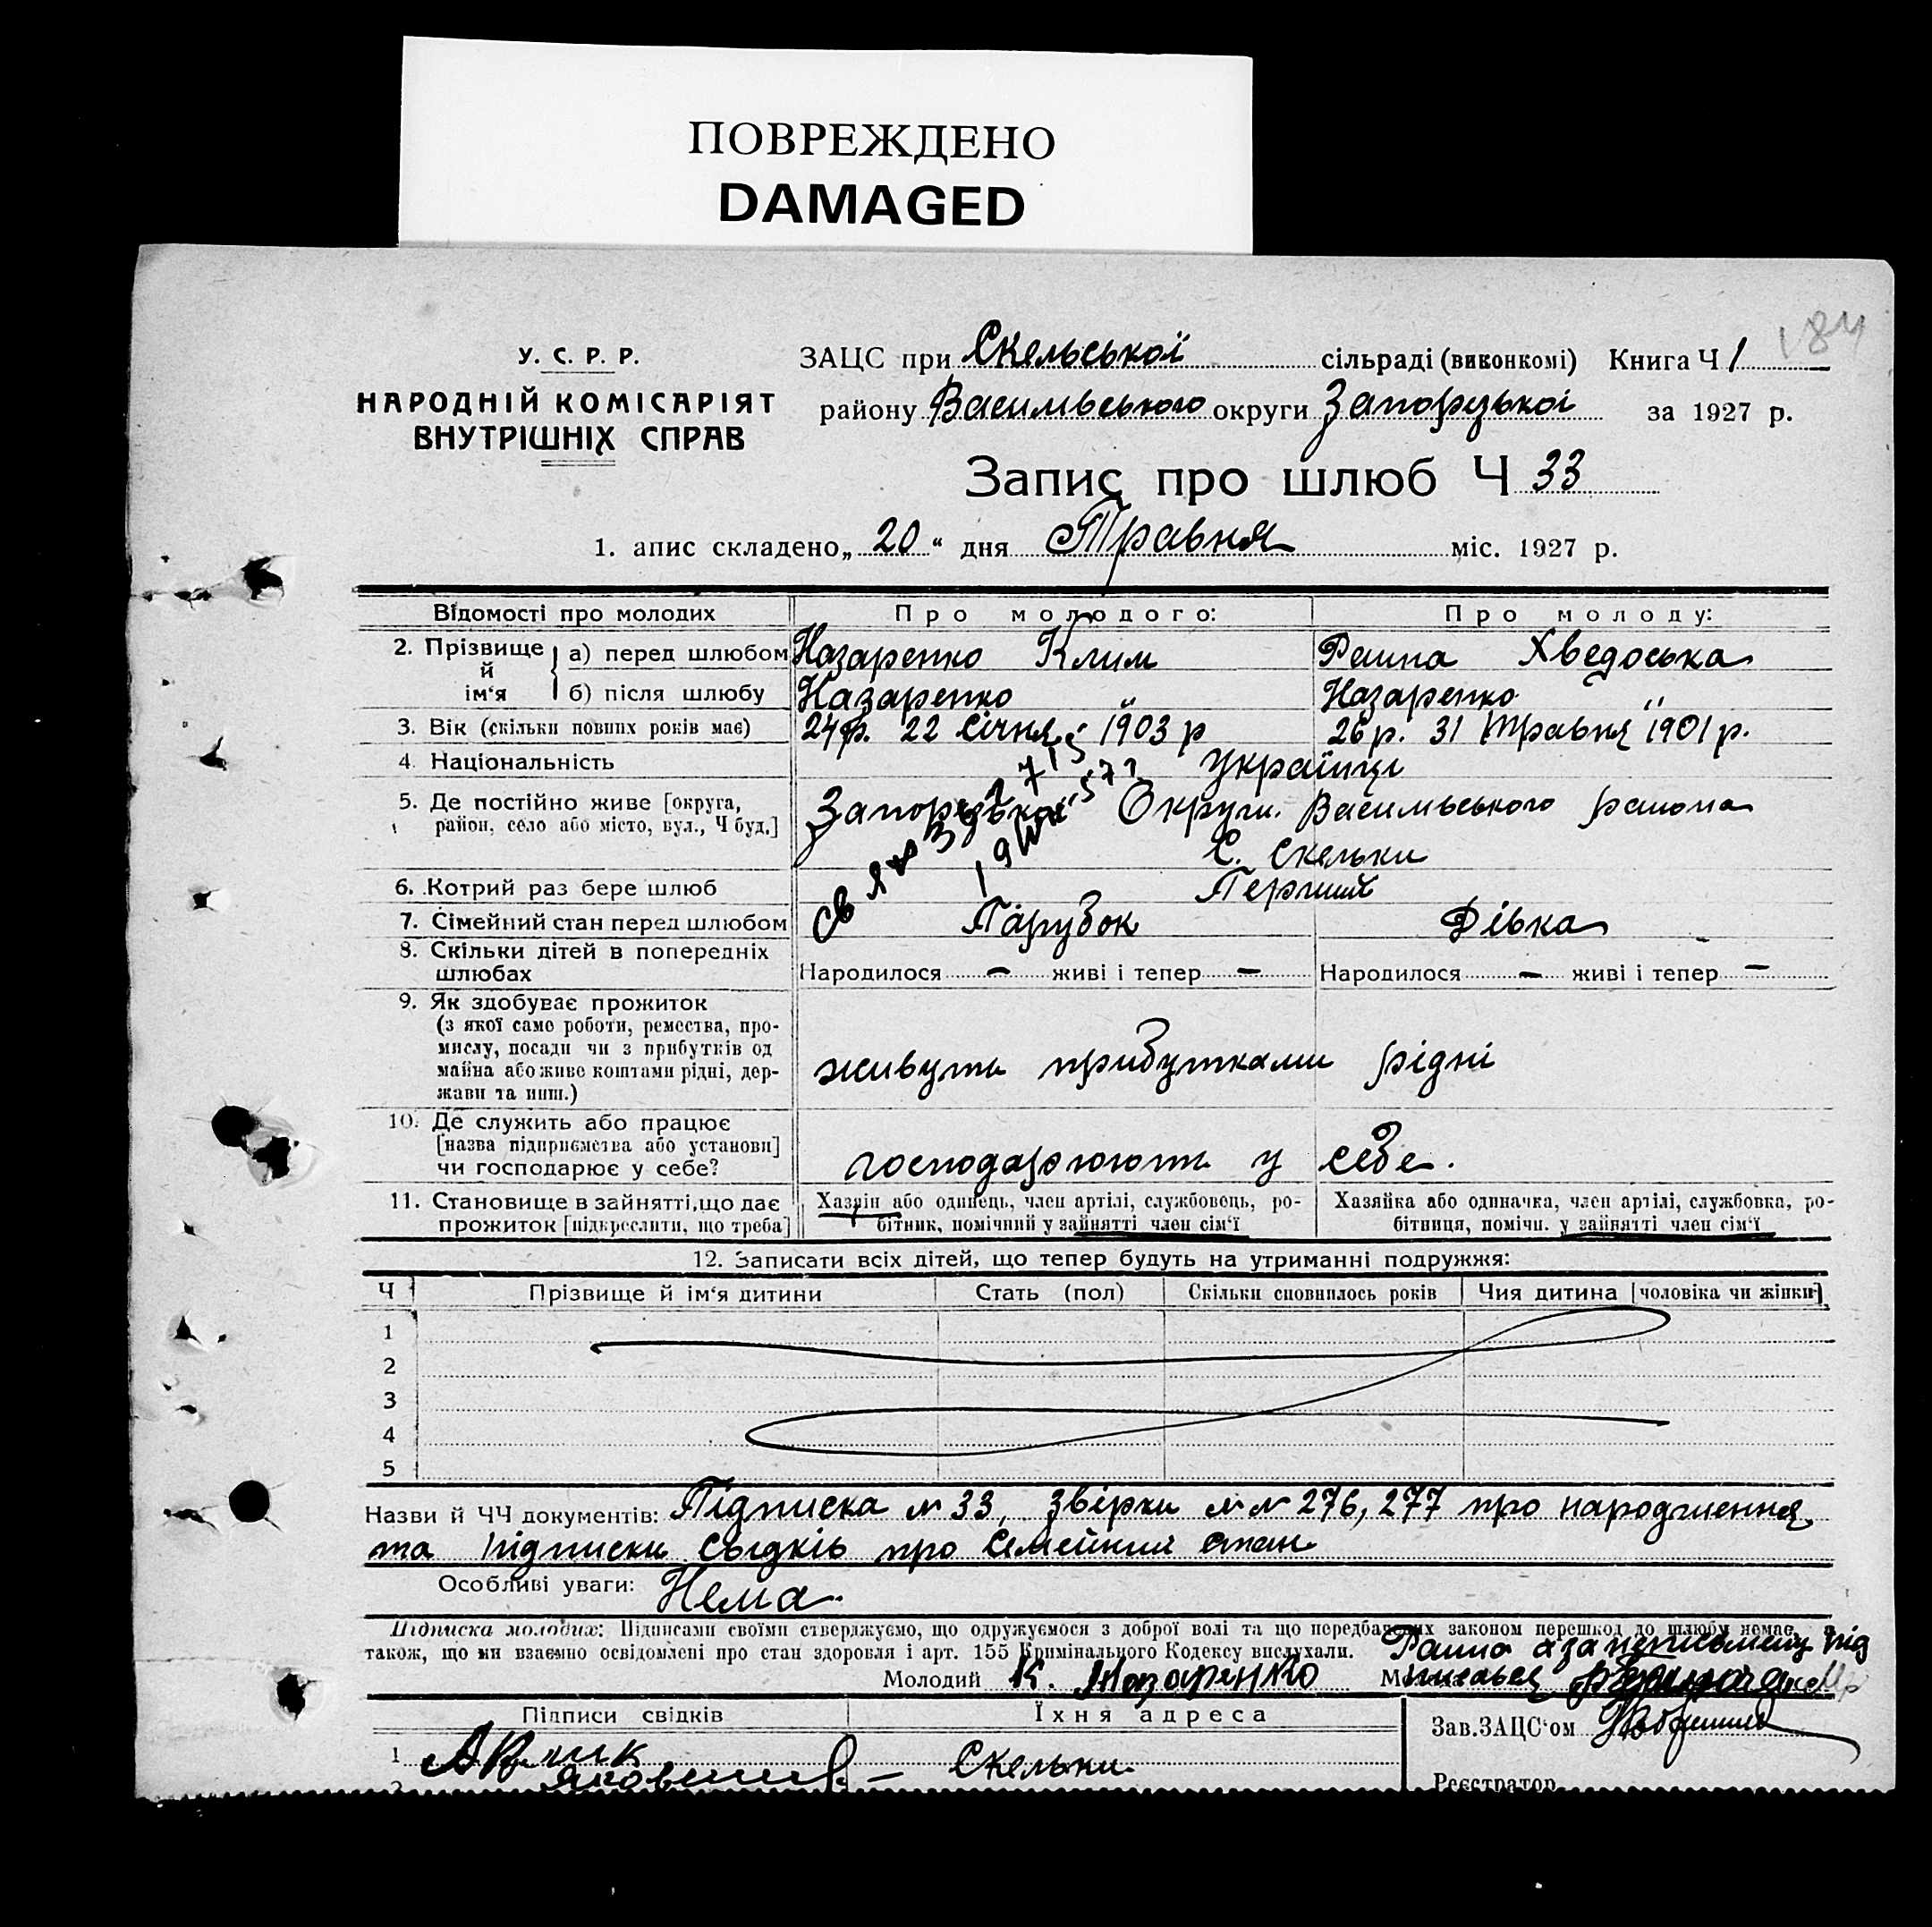 ПОВРЕЖДЕНО
DAMAGED
184
У. С. Р. Р.
НАРОДНІЙ КОМІСАРІЯТ
ВНУТРІШНІХ СПРАВ
ЗАЦС при Скельської сільраді (виконкомі) Книга Ч 1
району Васильвського округи Запорізької за 1927 р.
Запис про шлюб Ч 33
1. апис складено „ 20 “ дня Травня міс. 1927 р.
Відомості про молодих Про молодого: Про молоду:
2. Прізвище й ім‘я а) перед шлюбом Назаренко Клим Раппа Хведоська
б) після шлюбу Назаренко " Назаренко "
3. Вік (скільки повних років має) 24 р. 22 Січня 1903 р 26 р. 31 Травня 1901 р.
4. Національність Українці
5. Де постійно живе [округа, Запорізької Округи. Васильвського района
район, село або місто, вул., Ч буд.]
С. Скельки
6. Котрий раз бере шлюб Перший
7. Сімейний стан перед шлюбом Парубок Дівка
8. Скільки дітей в попередніх
шлюбах Народилося — живі і тепер — Народилося — живі і тепер —
9. Як здобуває прожиток
(з якої саме роботи, ремества, про-
мислу, посади чи з прибутків од
майна або живе коштами рідні, дер-
жави та инш.)
живуть прибутками рідні
10. Де служить або працює
[назва підприємства або установи]
чи господарює у себе?
господарюють у себе.
11. Становище в зайнятті, що дає Хазяїн або одинець, член артілі, службовець, ро- Хазяйка або одиначка, член артілі, службовка, ро-
прожиток [підкреслити, що треба] бітник, помічний у зайнятті член сім‘ї бітниця, помічн. у зайнятті член сім‘ї
12. Записати всіх дітей, що тепер будуть на утриманні подружжя:
Ч Прізвище й ім‘я дитини Стать (пол) Скільки сповнилось років Чия дитина [чоловіка чи жінки]
1
2
3
4
5
Назви й ЧЧ документів: Підписка № 33, звірки №№ 276, 277 про народження
та підписки свідків про Семейний стан
Особливі уваги: Нема
Підписка молодих: Підписами своїми стверджуємо, що одружуємося з доброї волі та що передбачених законом перешкод до шлюбу немає, а
також, що ми взаємно освідомлені про стан здоровля і арт. 155 Кримінального Кодексу вислухали.
Раппа а за неписьмену під
Молодий К. Назаренко
Підписи свідків Їхня адреса Зав. ЗАЦС‘ом
1 Скельки
2 Реєстратор